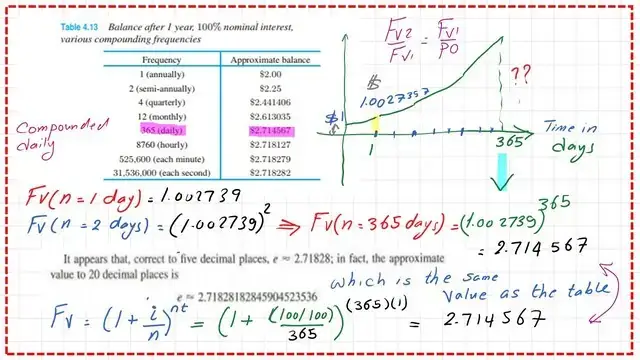 Table 4.13 Balance after 1 year, 100% nominal interest,
various compounding frequencies
Frequency Approximate balance
1 (annually) $2.00
2 (semi-annually) $2.25
4 (quarterly) $2.441406
12 (monthly) $2.613035
365 (daily) $2.714567
8760 (hourly) $2.718127
525,600 (each minute) $2.718279
31,536,000 (each second) $2.718282
Compounded
daily
Fv2/Fv1 = Fv1/P0
$
1.0027397
$1
??
1
365
Time in
days
Fv(n = 1 day) = 1.002739
Fv(n = 2 days) = (1.002739)^2 ⇒ Fv(n = 365 days) = (1.002739)^365
= 2.714567
It appears that, correct to five decimal places, e ≈ 2.71828; in fact, the approximate
value to 20 decimal places is
e ≈ 2.71828182845904523536
which is the same
value as the table
Fv = (1 + i/n)^nt = (1 + (100/100)/365)^(365)(1) = 2.714567